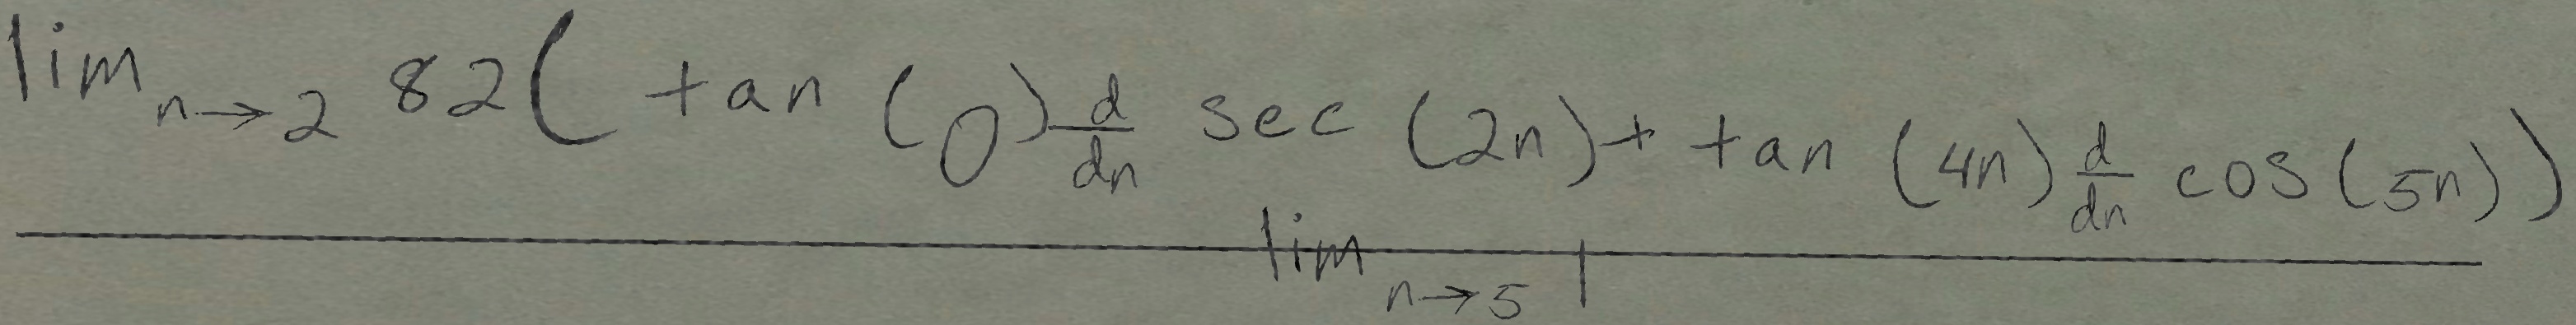 lim n→2 82( tan (0) d/dn sec (2n) + tan (4n) d/dn cos (5n))
lim n→5 1